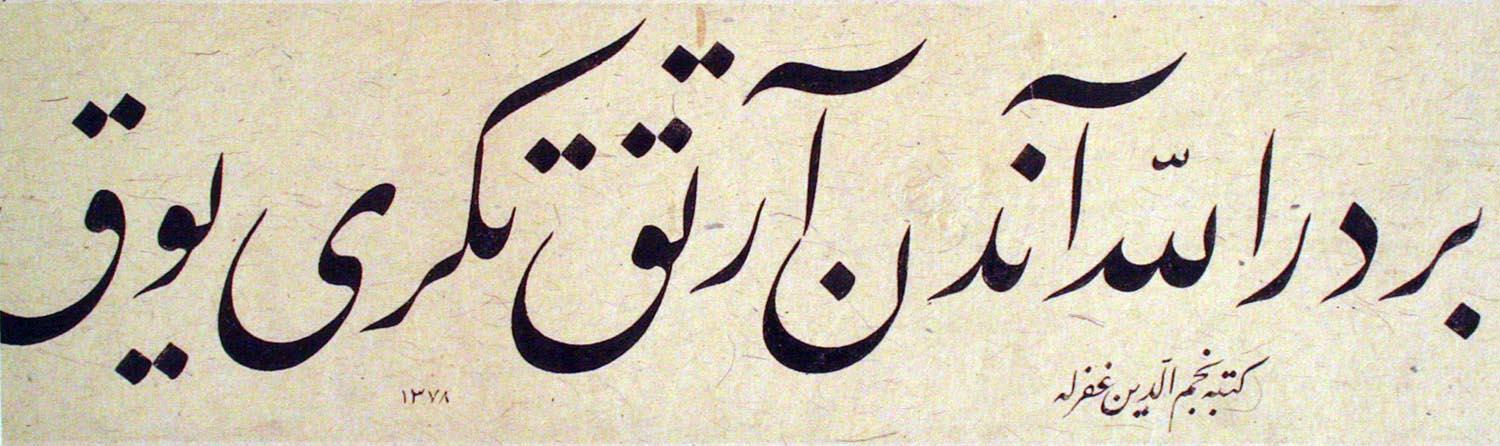 بر در اللّٰه آندن آرتق تكری یوق
كتبه نجم الدین غفرله
١٣٧٨